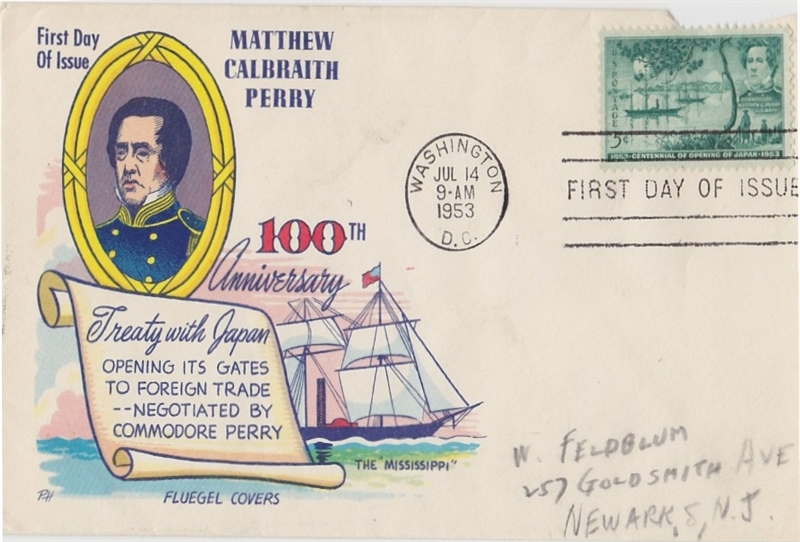 First Day
Of Issue
MATTHEW
CALBRAITH
PERRY
100TH
Anniversary
Treaty with Japan
OPENING ITS GATES
TO FOREIGN TRADE
--NEGOTIATED BY
COMMODORE PERRY
THE "MISSISSIPPI"
FLUEGEL COVERS
WASHINGTON
JUL 14
9-AM
1953
D.C.
POSTAGE
5¢
1853-CENTENNIAL OF OPENING OF JAPAN-1953
FIRST DAY OF ISSUE
W. FELDBLUM
257 GOLDSMITH AVE
NEWARK, 8, N.J.